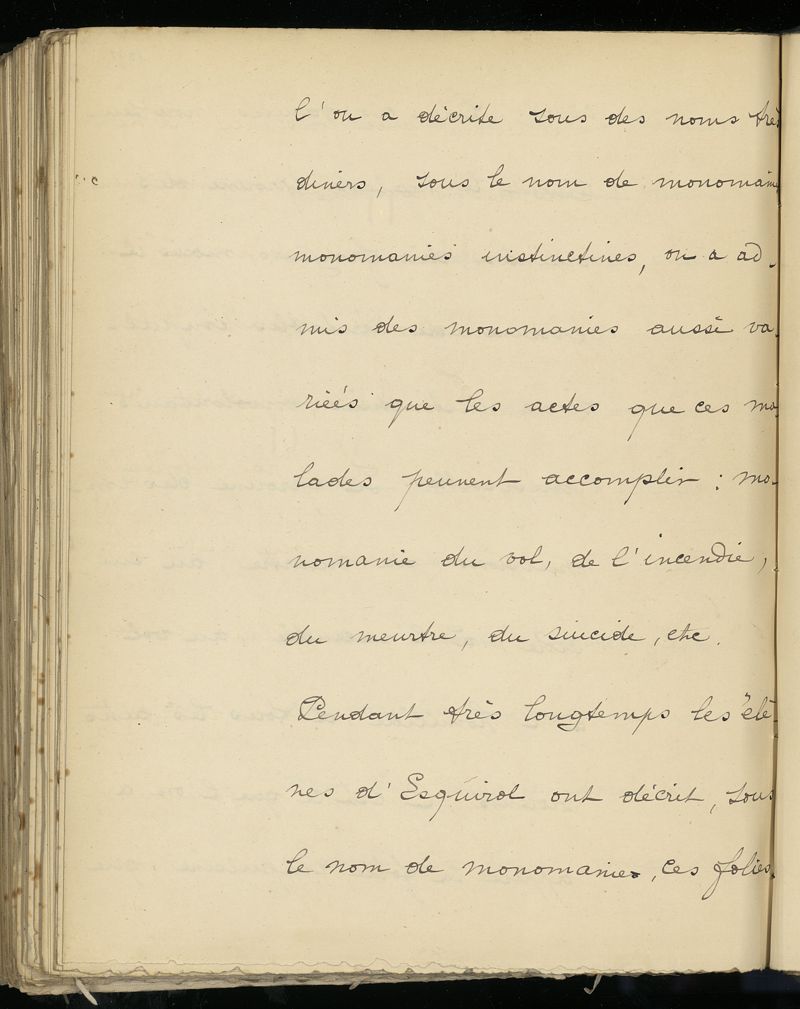 l'on a décrite sous des noms très
divers, sous le nom de monomanie
monomanies instinctives, on a ad-
mis des monomanies aussi va-
riées que les actes que ces ma-
lades peuvent accomplir : mo-
nomanie du vol, de l'incendie,
du meurtre, du suicide, etc.
Pendant très longtemps les élè-
ves d'Esquirol ont décrit, sous
le nom de monomanies, ces folies